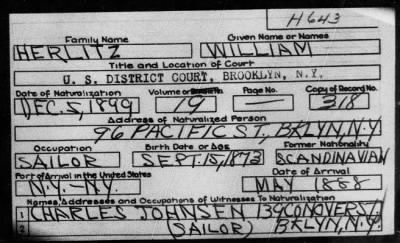 H643
Family Name Given Name or Names
HERLITZ WILLIAM
Title and Location of Court
U. S. DISTRICT COURT, BROOKLYN, N.Y.
Date of Naturalization Volume or Page No. Copy of Record No.
DEC. 5, 1899 19 — 318
Address of Naturalized Person
96 PACIFIC ST, BKLYN, N.Y
Occupation Birth Date or Age Former Nationality
SAILOR SEPT. 15, 1873 SCANDINAVIAN
Port of Arrival in the United States Date of Arrival
N.Y. – N.Y. MAY 1888
Names, Addresses and Occupations of Witnesses To Naturalization
1 CHARLES JOHNSEN 139 CONOVER ST
2 (SAILOR) BKLYN, N.Y.